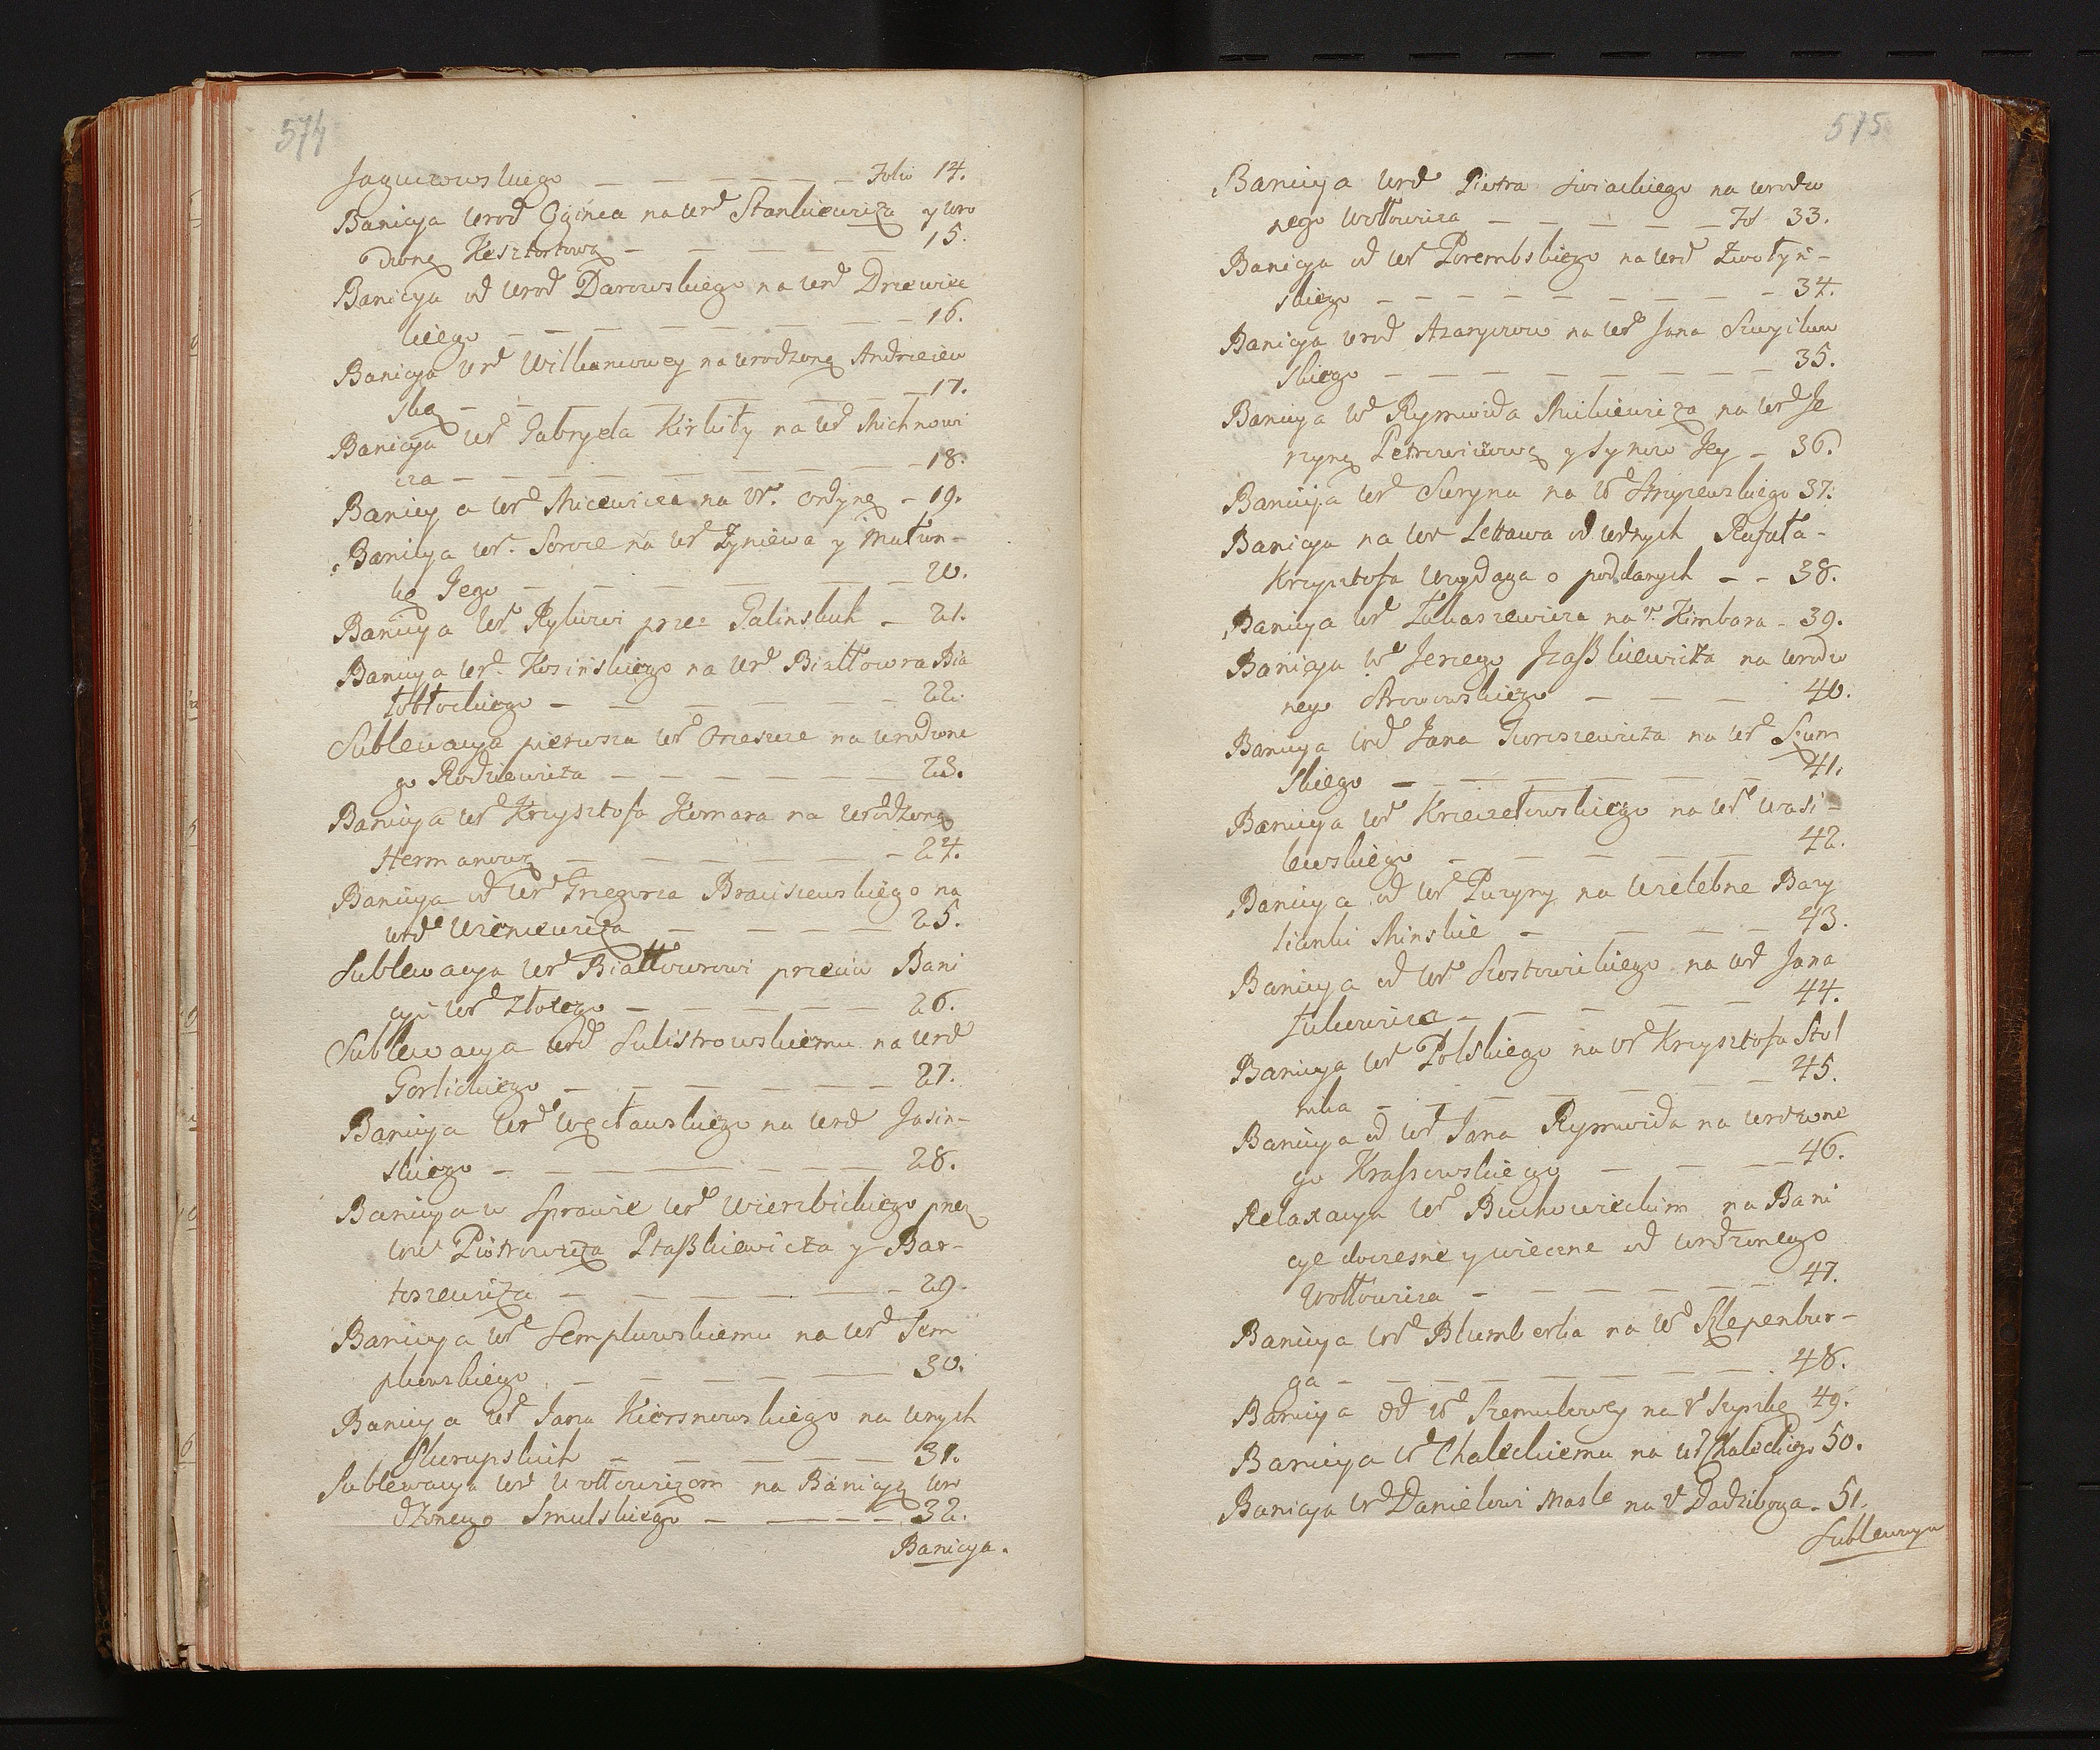 574
Jaguczowskiego — — — — — — Folio 14.
Banicya urod Oginca na Urd Stankiewicza y uro
dzoną Kesztortową — — — — — — 15.
Banicya od Urod Darowskiego na Urd Drzewiec
kiego — — — — — — — — 16.
Banicya Urd Wilkaniowey na urodzoną Andrzeiew
ską — — — — — — — — 17.
Banicya Ur Gabryela Kirkity na Ur Michnowi
cza — — — — — — — — 18.
Banicya Ur Micewicza na Ur. Ordynę — 19.
Banicya Ur. na Ur Zyniewa y Małżon-
kę Jego — — — — — — — 20.
Banicya Ur Rylowi prze: Galinskich — 21.
Banicya Ur. Kosińskiego na Urd Białłozora Bia
łobłockiego — — — — — — — 22.
Sublewacya pierwsza Ur Orzeszce na Urodzone
go Rodziewicza — — — — — — 23.
Banicya Ur Krzysztofa Komara na Urodzoną
Hermanową — — — — — — — 24.
Banicya od Ur Grzegorza Braciszewskiego na
urd — — — — — 25.
Sublewacya Ur Białłozorowi przeciw Bani
cyi Ur Złotego — — — — — — 26.
Sublewacya Urd Sulistrowskiemu na Urd
Gorlickiego — — — — — — — 27.
Banicya Ur Węcławskiego na Urd Jasin-
skiego — — — — — — — — 28.
Banicya w Sprawie Ur Wierzbickiego prze
ciw Piotrowicza Ptaszkiewicza y Bar-
toszewicza — — — — — — — 29.
Banicya Ur Templuwskiemu na Ur Tem
pluwskiego — — — — — — 30.
Banicya Ur Jana Kiersnowskiego na Urnych
Skurupskich — — — — — — 31.
Sublewacya Ur Wołłowiczom na Banicyą Uro
dzonego Smulskiego — — — — — 32.
Banicya.
575
Banicya Urd Piotra na urodzo
nego Wołłowicza — — — — — Fol 33.
Banicya od Ur Porembskiego na Urd Zwołyń-
skiego — — — — — — — — 34.
Banicya urod Azarycow na Ur Jana Szwyikow
skiego — — — — — — — — 35.
Banicya Ur Rymwida Mickiewicza na Ur Je
rzynę Petrowiczową y Synow Jey — 36.
Banicya Ur Suryna na Ur Stryzewskiego 37.
Banicya na Ur Lettawa od Urdnych Rafała —
Krzysztofa o poddanych — — 38.
Banicya Ur Łukaszewicza na Ur. Kimbara — 39.
Banicya Ur Jerzego Jzaszkiewicza na urodzo
nego Strowowskiego — — — — 40.
Banicya Urd Jana Turoszewicza na Ur Szum
skiego — — — — — — — — 41.
Banicya Ur Krzeczetowskiego na Ur Wasi-
lewskiego — — — — — — 42.
Banicya od Ur Puzyny na Wielebne Bazy
lianki Minskie — — — — — 43.
Banicya od Ur Szostowickiego na Ur Jana
Żukowicza — — — — — — 44.
Banicya Ur Polskiego na Ur Krzysztofa Stol
nika — — — — — — — — 45.
Banicya od Ur Jana Rymwida na Urodzone
go Krassowskiego — — — — 46.
Relaxacya Ur Buchowieckim na Bani
cye doczesne y wieczne od urodzonego
Wołłowicza — — — — — — 47.
Banicya Ur Blumberka na Ur Klepenbur-
ga — — — — — — — — 48.
Banicya od Ur Szemutowey na Ur Szyszkę 49.
Banicya Ur Chaleckiemu na Ur Chaleckiego 50.
Banicya Ur Danielowi Masle na Ur Dadziboga — 51.
Sublewacya